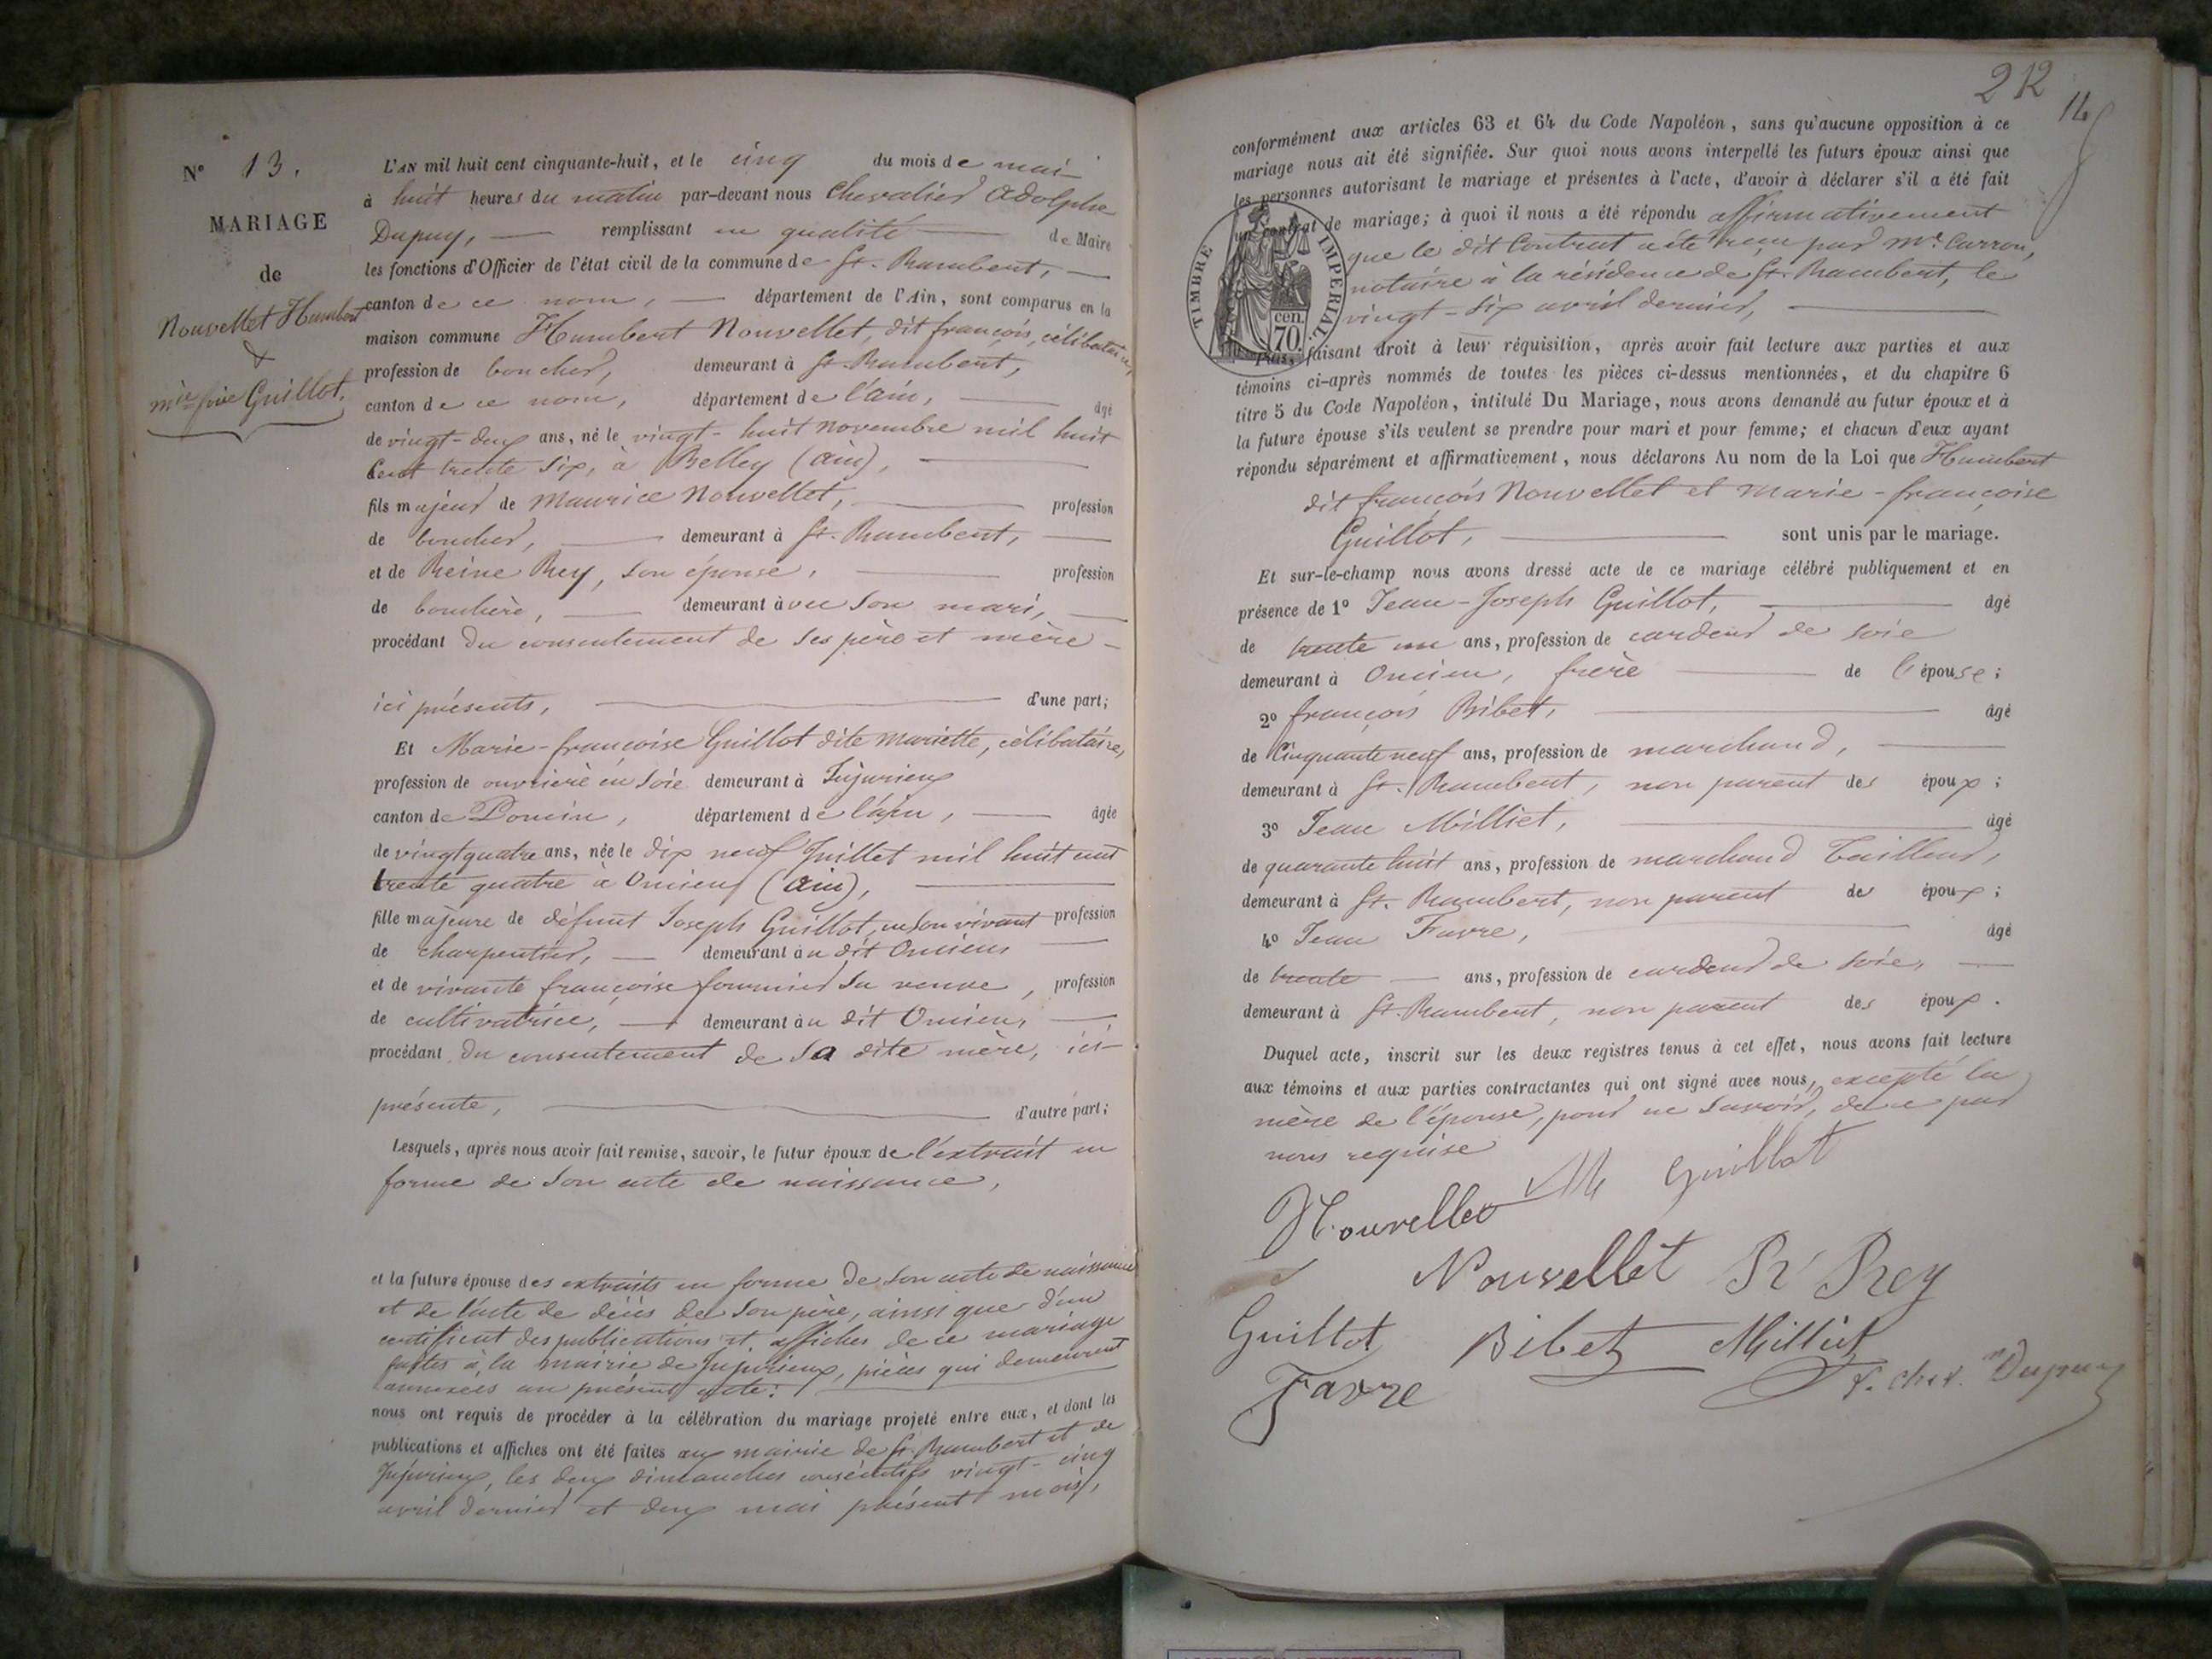 N° 13.
MARIAGE
de
Nouvellet Humbert
&
mie foise Guillot.
L'AN mil huit cent cinquante-huit, et le cinq du mois de mai
à huit heures du matin par-devant nous Chevalier Adolphe
Dupuy, remplissant en qualité de Maire
les fonctions d'Officier de l'état civil de la commune de St. Rambert,
canton de ce nom, département de l'Ain, sont comparus en la
maison commune Humbert Nouvellet, dit françois, célibataire,
profession de boucher, demeurant à St. Rambert,
canton de ce nom, département de l'ain, âgé
de vingt-deux ans, né le vingt-huit novembre mil huit
Cent trente six, à Belley (ain),
fils majeur de Maurice Nouvellet, profession
de boucher, demeurant à St. Rambert,
et de Reine Rey, son épouse, profession
de bouchère, demeurant avec son mari,
procédant du consentement de ses père et mère
ici présents, d'une part;
Et Marie-françoise Guillot dite Mariette, célibataire,
profession de ouvrière en soie demeurant à Jujurieux
canton de Poncin, département de l'ain, âgée
de vingt quatre ans, née le dix neuf Juillet mil huit cent
trente quatre à Oncieux (ain),
fille majeure de défunt Joseph Guillot, en son vivant profession
de charpentier, demeurant au dit Oncieux
et de vivante françoise fournier sa veuve, profession
de cultivatrice, demeurant au dit Oncieu,
procédant du consentement de sa dite mère, ici
présente, d'autre part;
Lesquels, après nous avoir fait remise, savoir, le futur époux de l'extrait en
forme de son acte de naissance,
et la future épouse des extraits en forme de son acte de naissance
et de l'acte de décès de son père, ainsi que d'un
certificat des publications et affiches de ce mariage
faites à la mairie de Jujurieux, pièces qui demeurent
annexées au présent acte:
nous ont requis de procéder à la célébration du mariage projeté entre eux, et dont les
publications et affiches ont été faites aux mairie de St. Rambert et de
Jujurieux, les deux dimanches consécutifs vingt-cinq
avril dernier et deux mai présent mois,
212
14
conformément aux articles 63 et 64 du Code Napoléon, sans qu'aucune opposition à ce
mariage nous ait été signifiée. Sur quoi nous avons interpellé les futurs époux ainsi que
les personnes autorisant le mariage et présentes à l'acte, d'avoir à déclarer s'il a été fait
un contrat de mariage; à quoi il nous a été répondu affirmativement
que le dit Contrat a été reçu par Me. Carron,
notaire à la résidence de St. Rambert, le
vingt-six avril dernier,
TIMBRE IMPERIAL
70 cen.
faisant droit à leur réquisition, après avoir fait lecture aux parties et aux
témoins ci-après nommés de toutes les pièces ci-dessus mentionnées, et du chapitre 6
titre 5 du Code Napoléon, intitulé Du Mariage, nous avons demandé au futur époux et à
la future épouse s'ils veulent se prendre pour mari et pour femme; et chacun d'eux ayant
répondu séparément et affirmativement, nous déclarons Au nom de la Loi que Humbert
dit françois Nouvellet et Marie-françoise
Guillot, sont unis par le mariage.
Et sur-le-champ nous avons dressé acte de ce mariage célébré publiquement et en
présence de 1° Jean-Joseph Guillot, âgé
de trente un ans, profession de cardeur de soie
demeurant à Oncieu, frère de l'épouse;
2° françois Bibet, âgé
de Cinquante neuf ans, profession de marchand,
demeurant à St. Rambert, non parent des époux;
3° Jean Milliet, âgé
de quarante huit ans, profession de marchand Tailleur,
demeurant à St. Rambert, non parent des époux;
4° Jean Favre, âgé
de trente ans, profession de cardeur de soie,
demeurant à St. Rambert, non parent des époux.
Duquel acte, inscrit sur les deux registres tenus à cet effet, nous avons fait lecture
aux témoins et aux parties contractantes qui ont signé avec nous, excepté la
mère de l'épouse, pour ne savoir, de ce par
nous requise
Nouvellet M Guillot
Nouvellet R Rey
Guillot Bibet Milliet
Favre F. chev. Dupuy